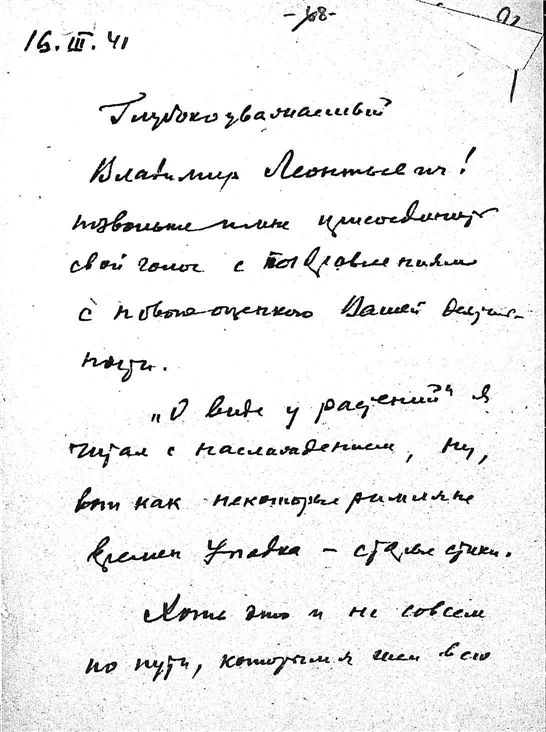 -68-
16.III.41
Глубокоуважаемый
Владимир Леонтьевич!
позвольте мне присоединить
свой голос с поздравлениями
с новою оценкою Вашей деятель-
ности.
„О виде у растений“ я
читал с наслаждением, ну,
вот как некоторые римляне
времен Упадка – старые стихи.
Хоть это и не совсем
по пути, которым я шел всю